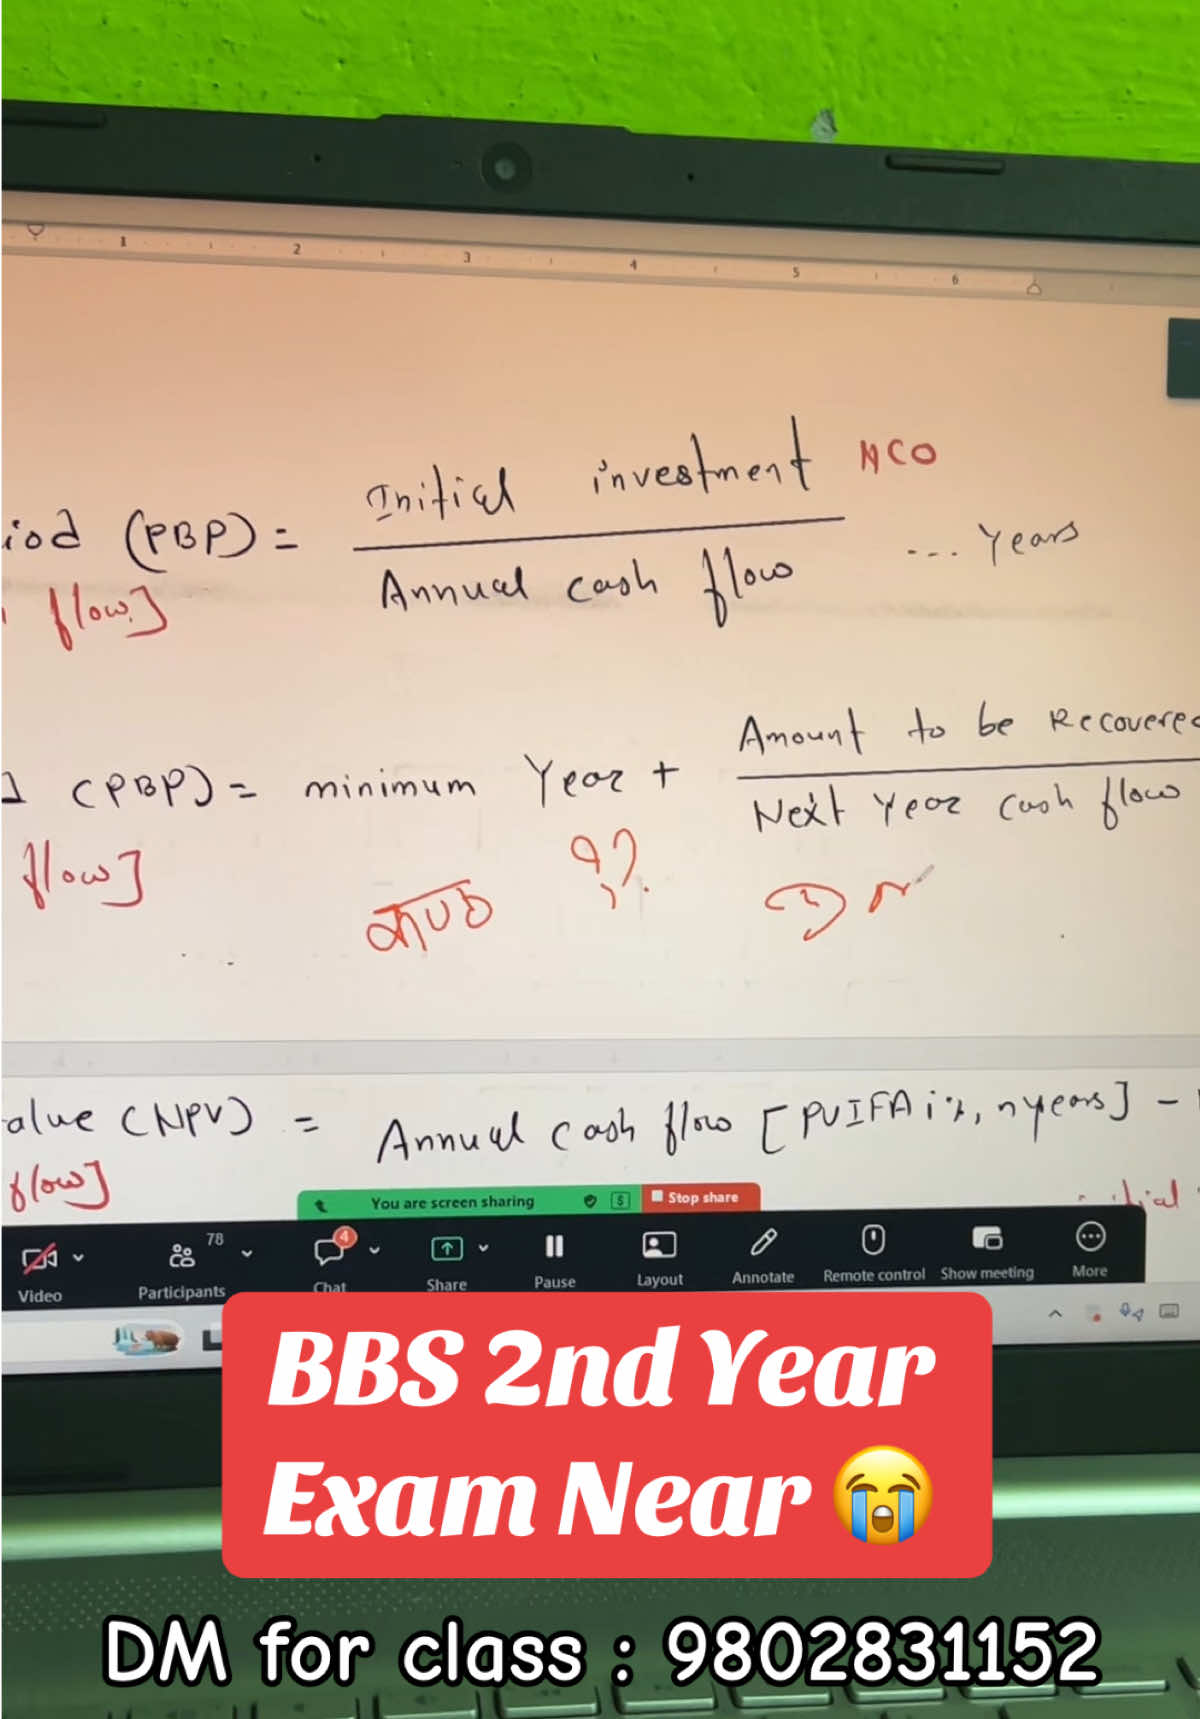 1 2 3 4 5 6
Initial investment NCO
iod (PBP) = ... Years
Annual cash flow
flow]
Amount to be Recovered
(PBP) = minimum Year +
Next Year cash flow
flow]
??
alue (NPV) = Annual cash flow [PVIFA i%, nyears] -
flow]
You are screen sharing $ Stop share
78 4
Video Participants Chat Share Pause Layout Annotate Remote control Show meeting More
BBS 2nd Year
Exam Near 😭
DM for class : 9802831152